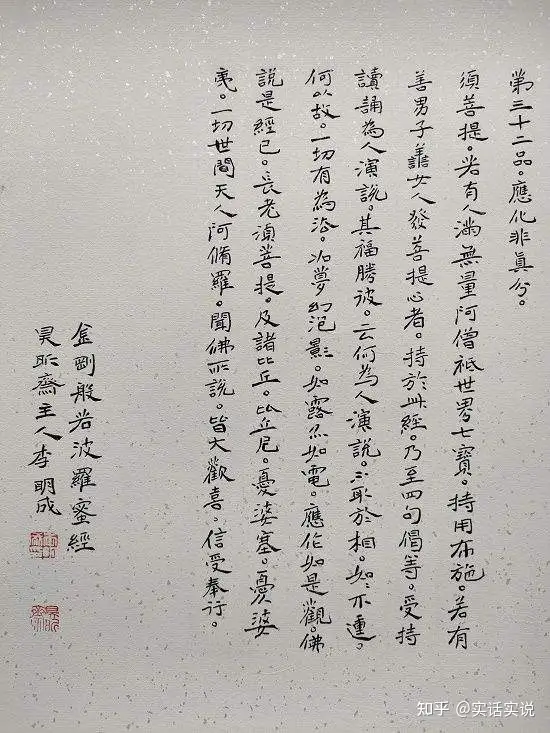 第三十二品。應化非眞分。
須菩提。若有人滿無量阿僧祇世界七寶。持用布施。若有
善男子善女人發菩提心者。持於此經。乃至四句偈等。受持
讀誦為人演說。其福勝彼。云何為人演說。不取於相。如々不動。
何以故。一切有為法。如夢幻泡影。如露亦如電。應作如是觀。佛
說是經已。長老須菩提。及諸比丘。比丘尼。憂婆塞。憂婆
夷。一切世間天人阿脩羅。聞佛所說。皆大歡喜。信受奉行。
金剛般若波羅蜜經
昊昕齋主人李明成
知乎 @实话实说